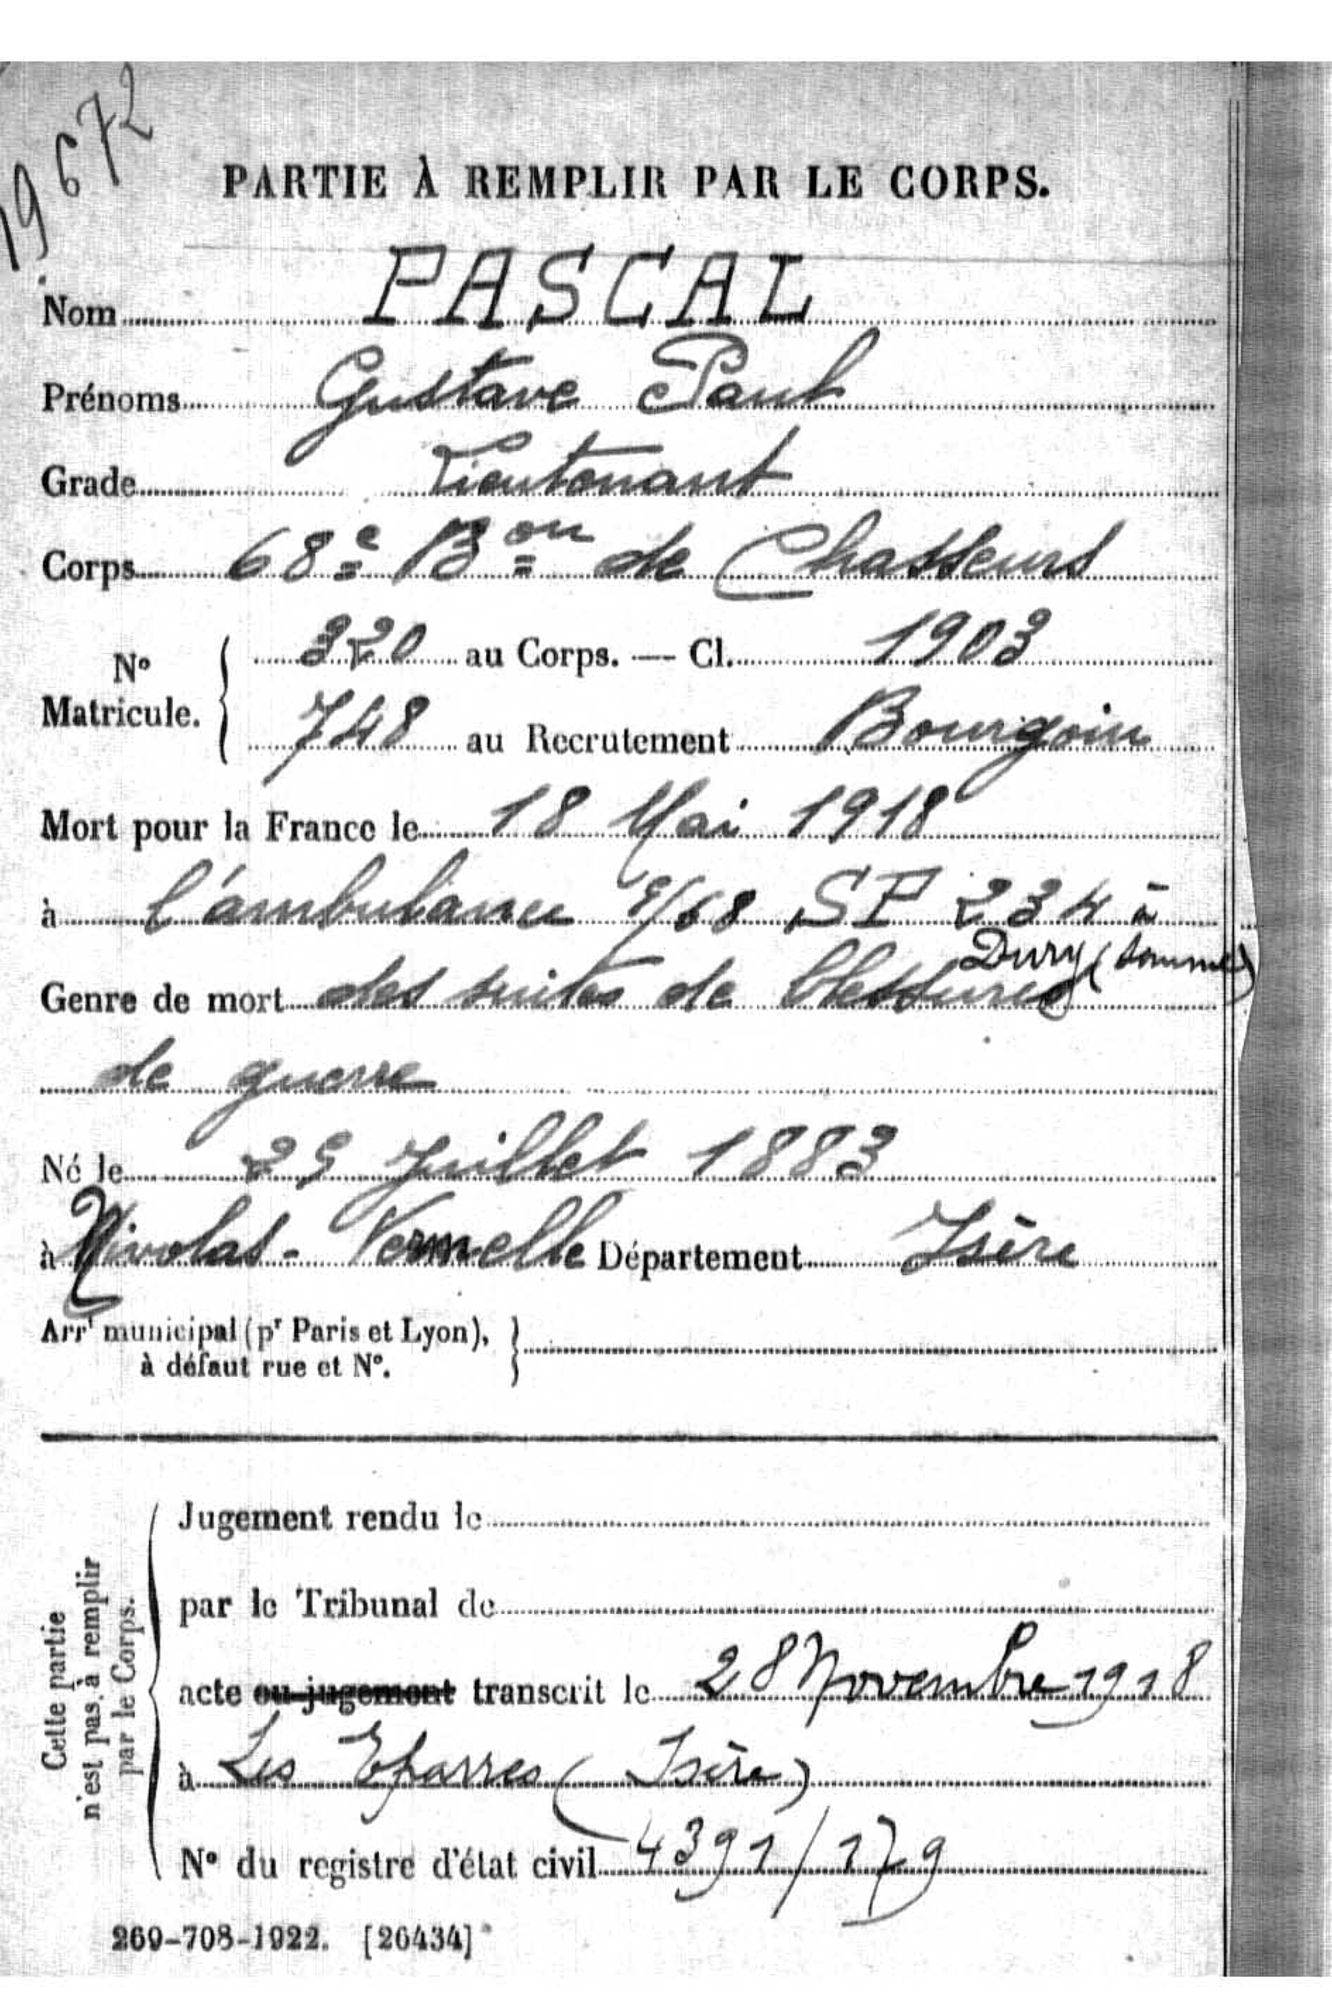 19672
PARTIE À REMPLIR PAR LE CORPS.
Nom PASCAL
Prénoms Gustave Paul
Grade Lieutenant
Corps 68e Bon de Chasseurs
N° Matricule. 320 au Corps. — Cl. 1903
748 au Recrutement Bourgoin
Mort pour la France le 18 Mai 1918
à l'ambulance 9/68 SP 234 à
Dury (Somme)
Genre de mort des suites de blessures
de guerre
Né le 29 Juillet 1883
à Nivolas-Vermelle Département Isère
Arrt municipal (pr Paris et Lyon),
à défaut rue et N°.
Cette partie
n'est pas à remplir
par le Corps.
Jugement rendu le
par le Tribunal de
acte ou jugement transcrit le 28 Novembre 1918
à Les Eparres (Isère)
N° du registre d'état civil 4391/179
269-708-1922. [26434]